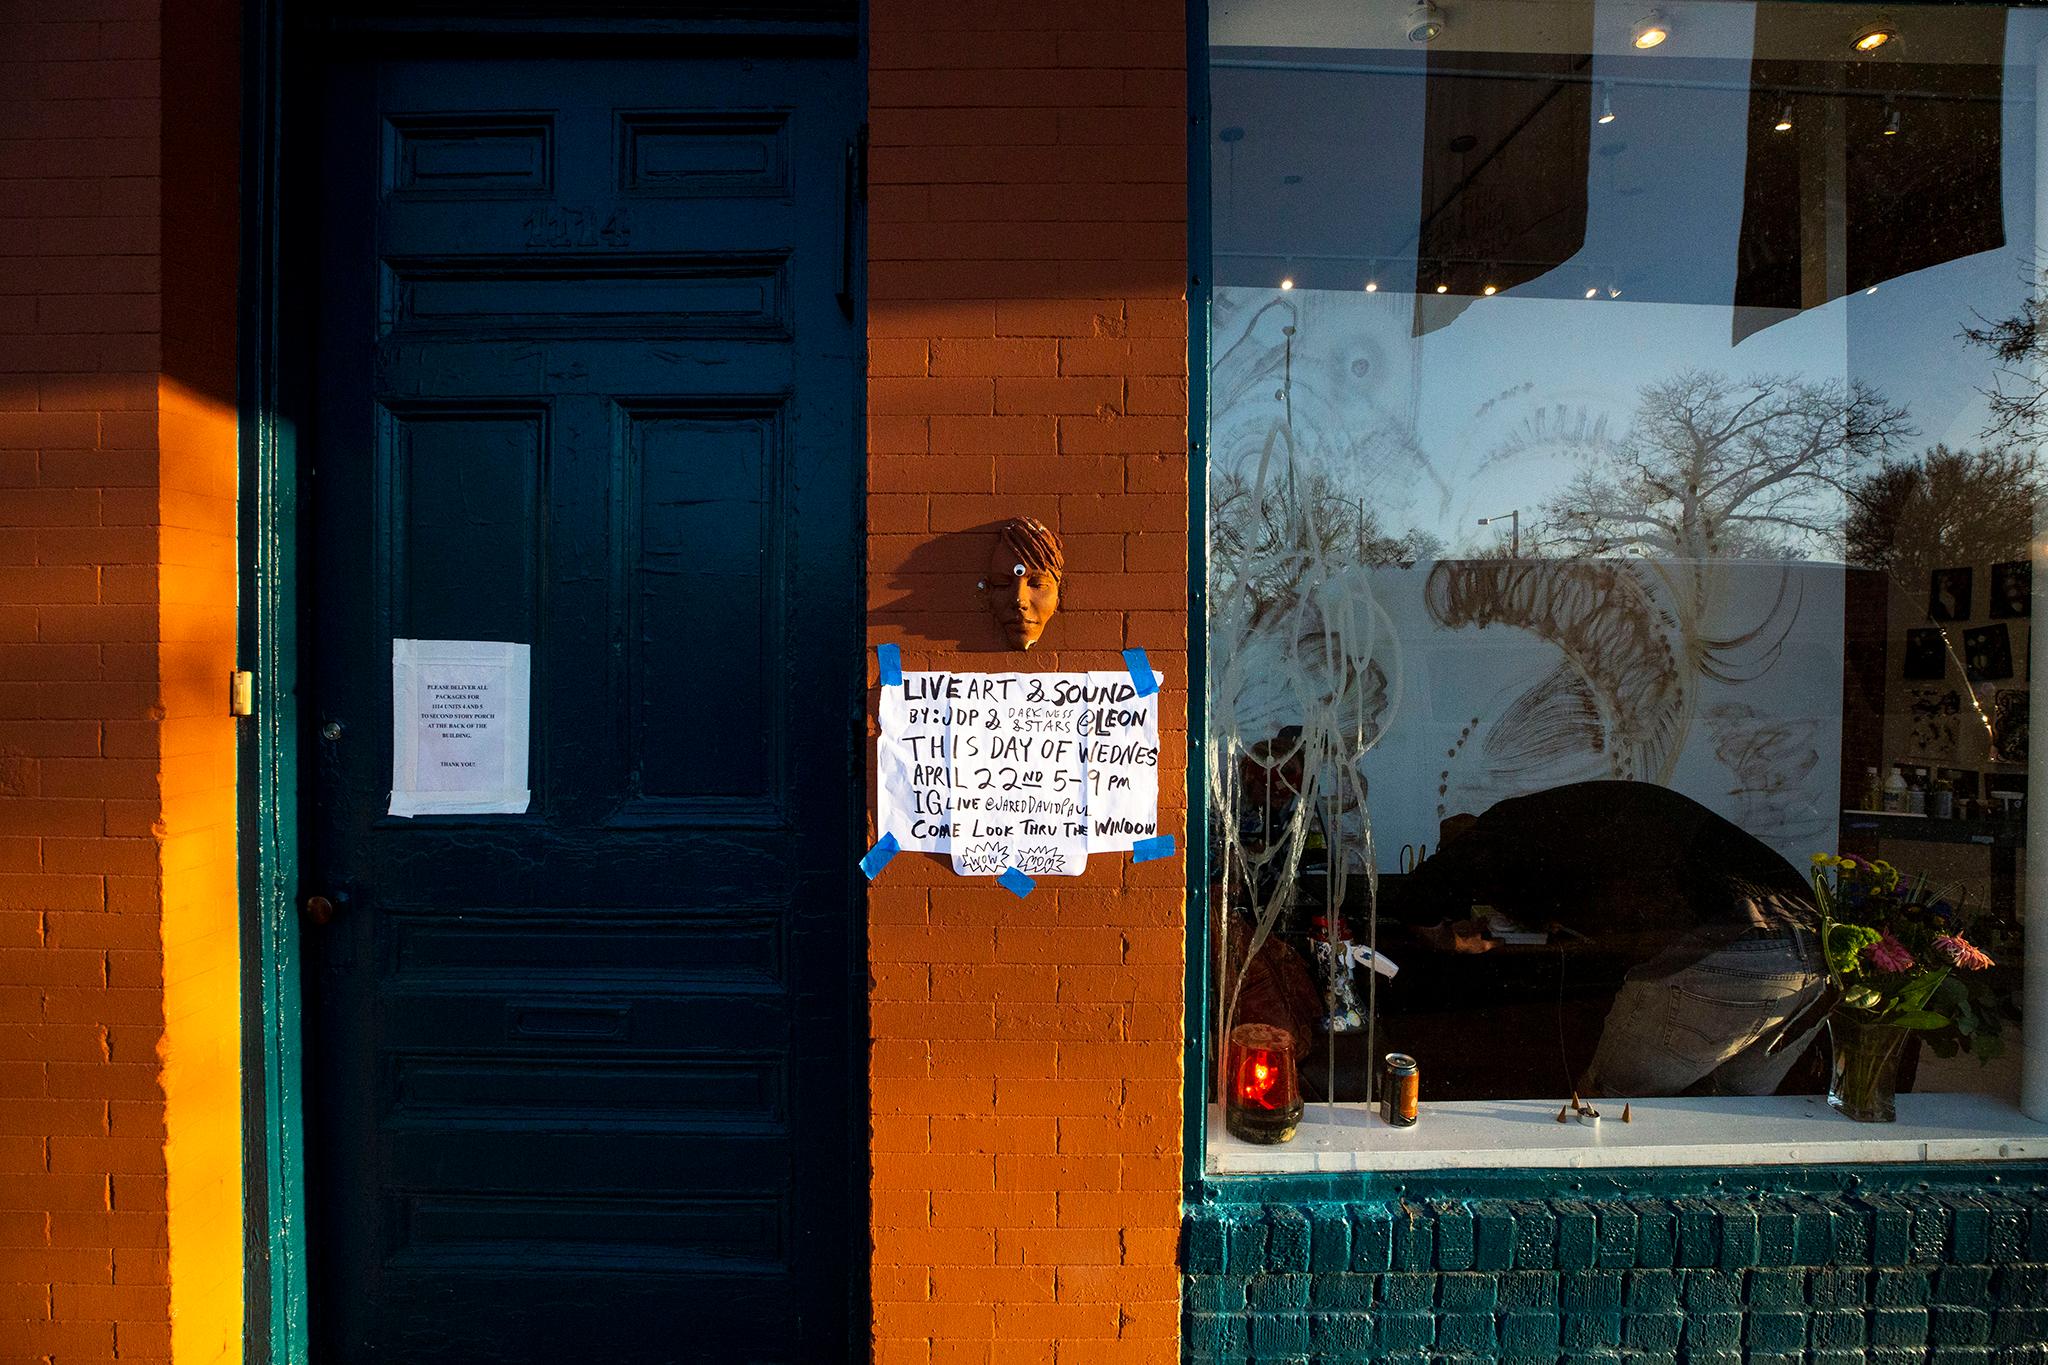 1114
PLEASE DELIVER ALL
PACKAGES FOR
1114 UNITS 4 AND 5
TO SECOND STORY PORCH
AT THE BACK OF THE
BUILDING.
THANK YOU!
LIVE ART & SOUND
BY: JDP & DARKNESS & STARS @LEON
THIS DAY OF WEDNES
APRIL 22ND 5-9 PM
IG LIVE @JAREDDAVIDPAUL
COME LOOK THRU THE WINDOW
WOW MOM